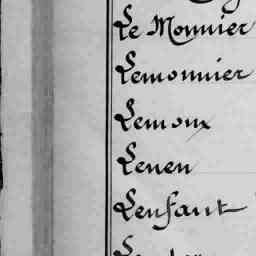 Le Monnier
Lemonnier
Lemoux
Lenen
Lenfant